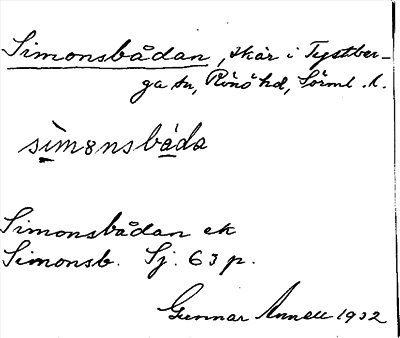 Simonsbådan, skär i Tystber-
ga sn, Rönö hd, Sörml. l.
sìm8nsbåda
Simonsbådan ek
Simonsb. Sj. 63 p.
Gunnar Annell 1932